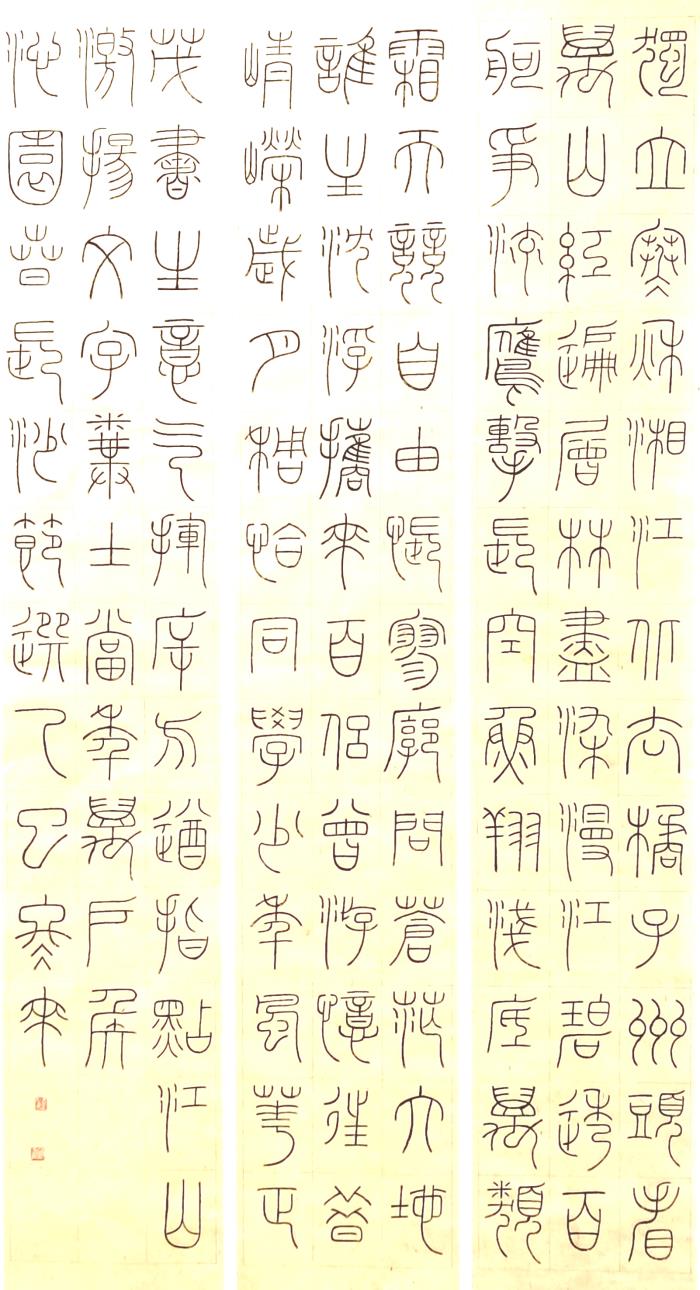 獨立寒秋湘江北去橘子州頭看
萬山紅遍層林盡染漫江碧透百
舸爭流鷹擊長空魚翔淺底萬類
霜天競自由悵寥廓問蒼茫大地
誰主沈浮攜來百侶曾游憶往昔
崢嶸歲月稠恰同學少年風華正
茂書生意气揮斥方遒指點江山
激揚文字糞土當年萬戶侯
沁園春長沙節選乙巳冬來